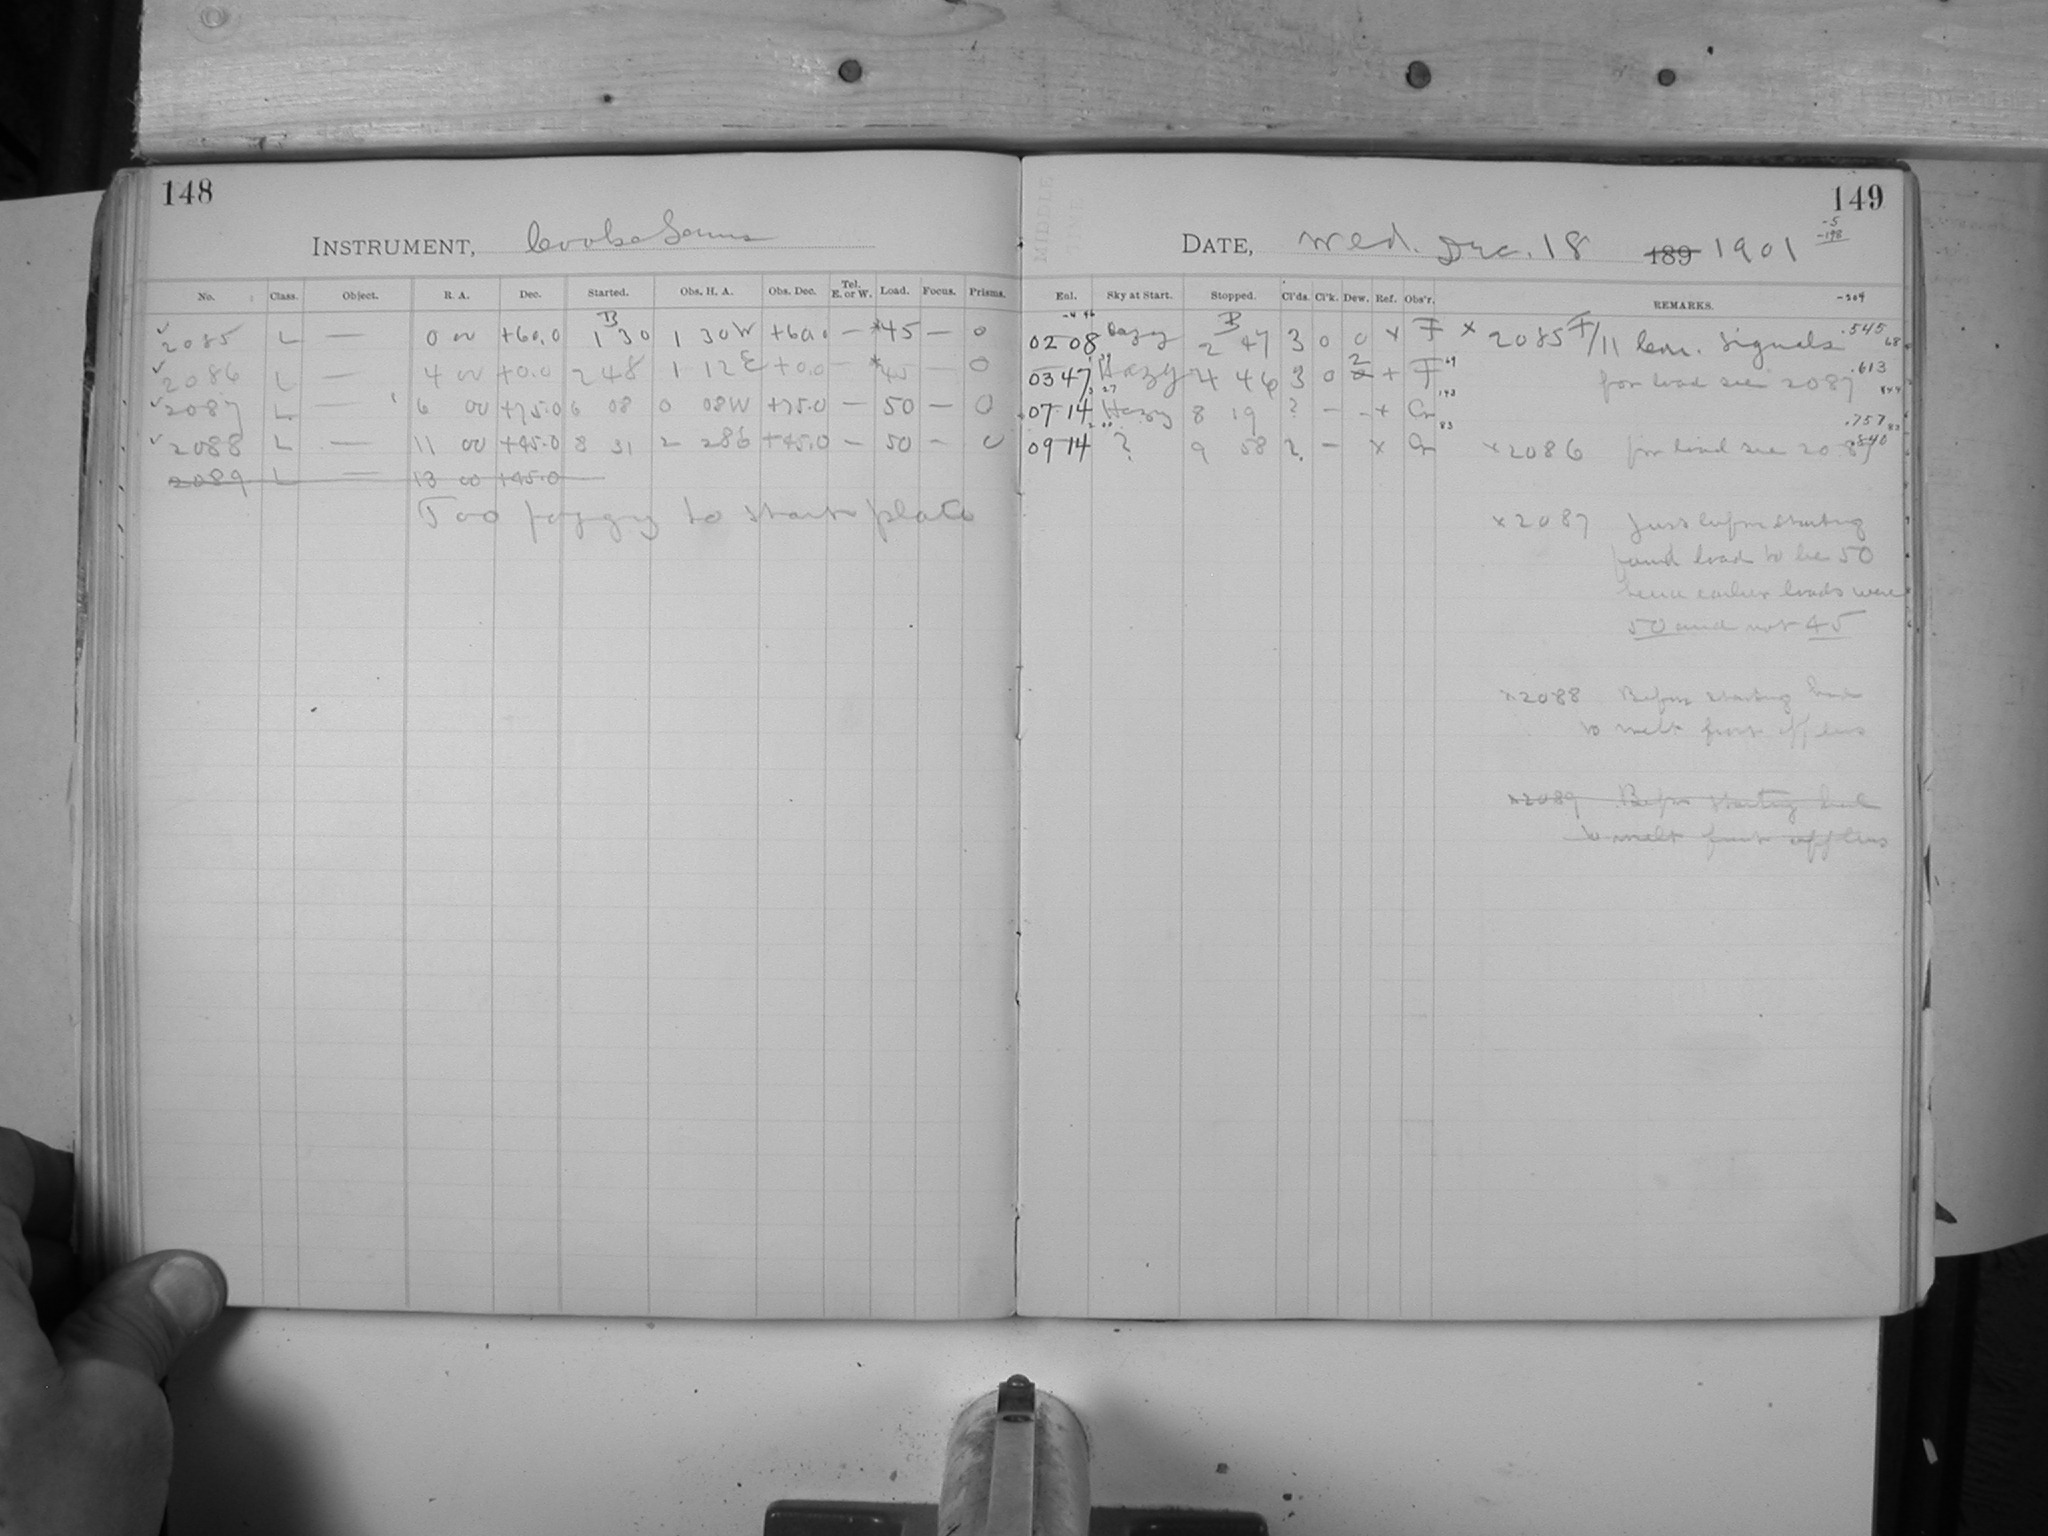 148
INSTRUMENT, Cooke Lens
No. Class. Object. R. A. Dec. Started. Obs. H. A. Obs. Dec. Tel. E. or W. Load. Focus. Prisms.
B
✓ 2085 L — 0 00 +60.0 1 30 1 30 W +60.0 — *45 — 0
✓ 2086 L — 4 00 +0.0 2 48 1 12 E +0.0 — *45 — 0
✓ 2087 L — 6 00 +75.0 6 08 0 08 W +75.0 — 50 — 0
✓ 2088 L — 11 00 +45.0 8 31 2 28 E +45.0 — 50 — 0
2089 L — 13 00 +45.0 —
Too foggy to start plate
149
DATE, Wed. Dec. 18 189 1901
-5
-198
-204
Eol. Sky at Start. Stopped. Cl'ds. Cl'k. Dew. Ref. Obs'r. REMARKS.
B
02 08 Hazy 2 47 3 0 0 x F x 2085 F/11 Com. signals .545
03 47 Hazy 4 46 3 0 2 + F for load see 2087 .613
07 14 Hazy 8 19 ? — - + Cr .757
09 14 ? 9 58 ? — x Cr x 2086 for load see 2087 .840
x 2087 Just before starting
found load to be 50
hence earlier loads were
50 and not 45
x 2088 Before starting had
to melt frost off lens
x 2089 Before starting had
to melt frost off lens